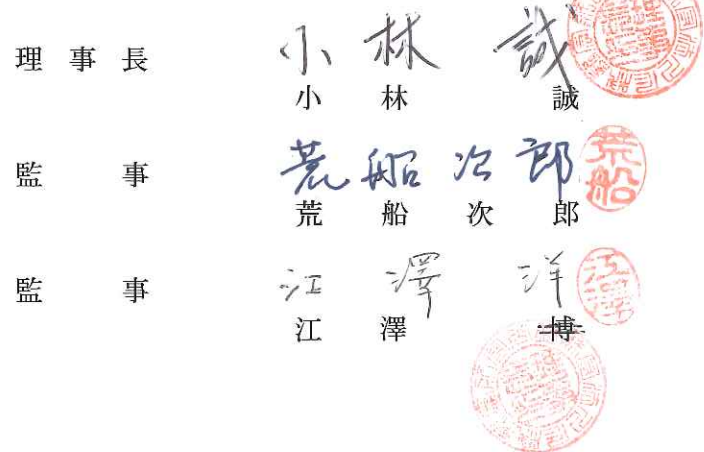 理事長 小林 誠
小林 誠
監事 荒船次郎 荒船
荒船次郎
監事 江澤 洋 江澤
江澤 博